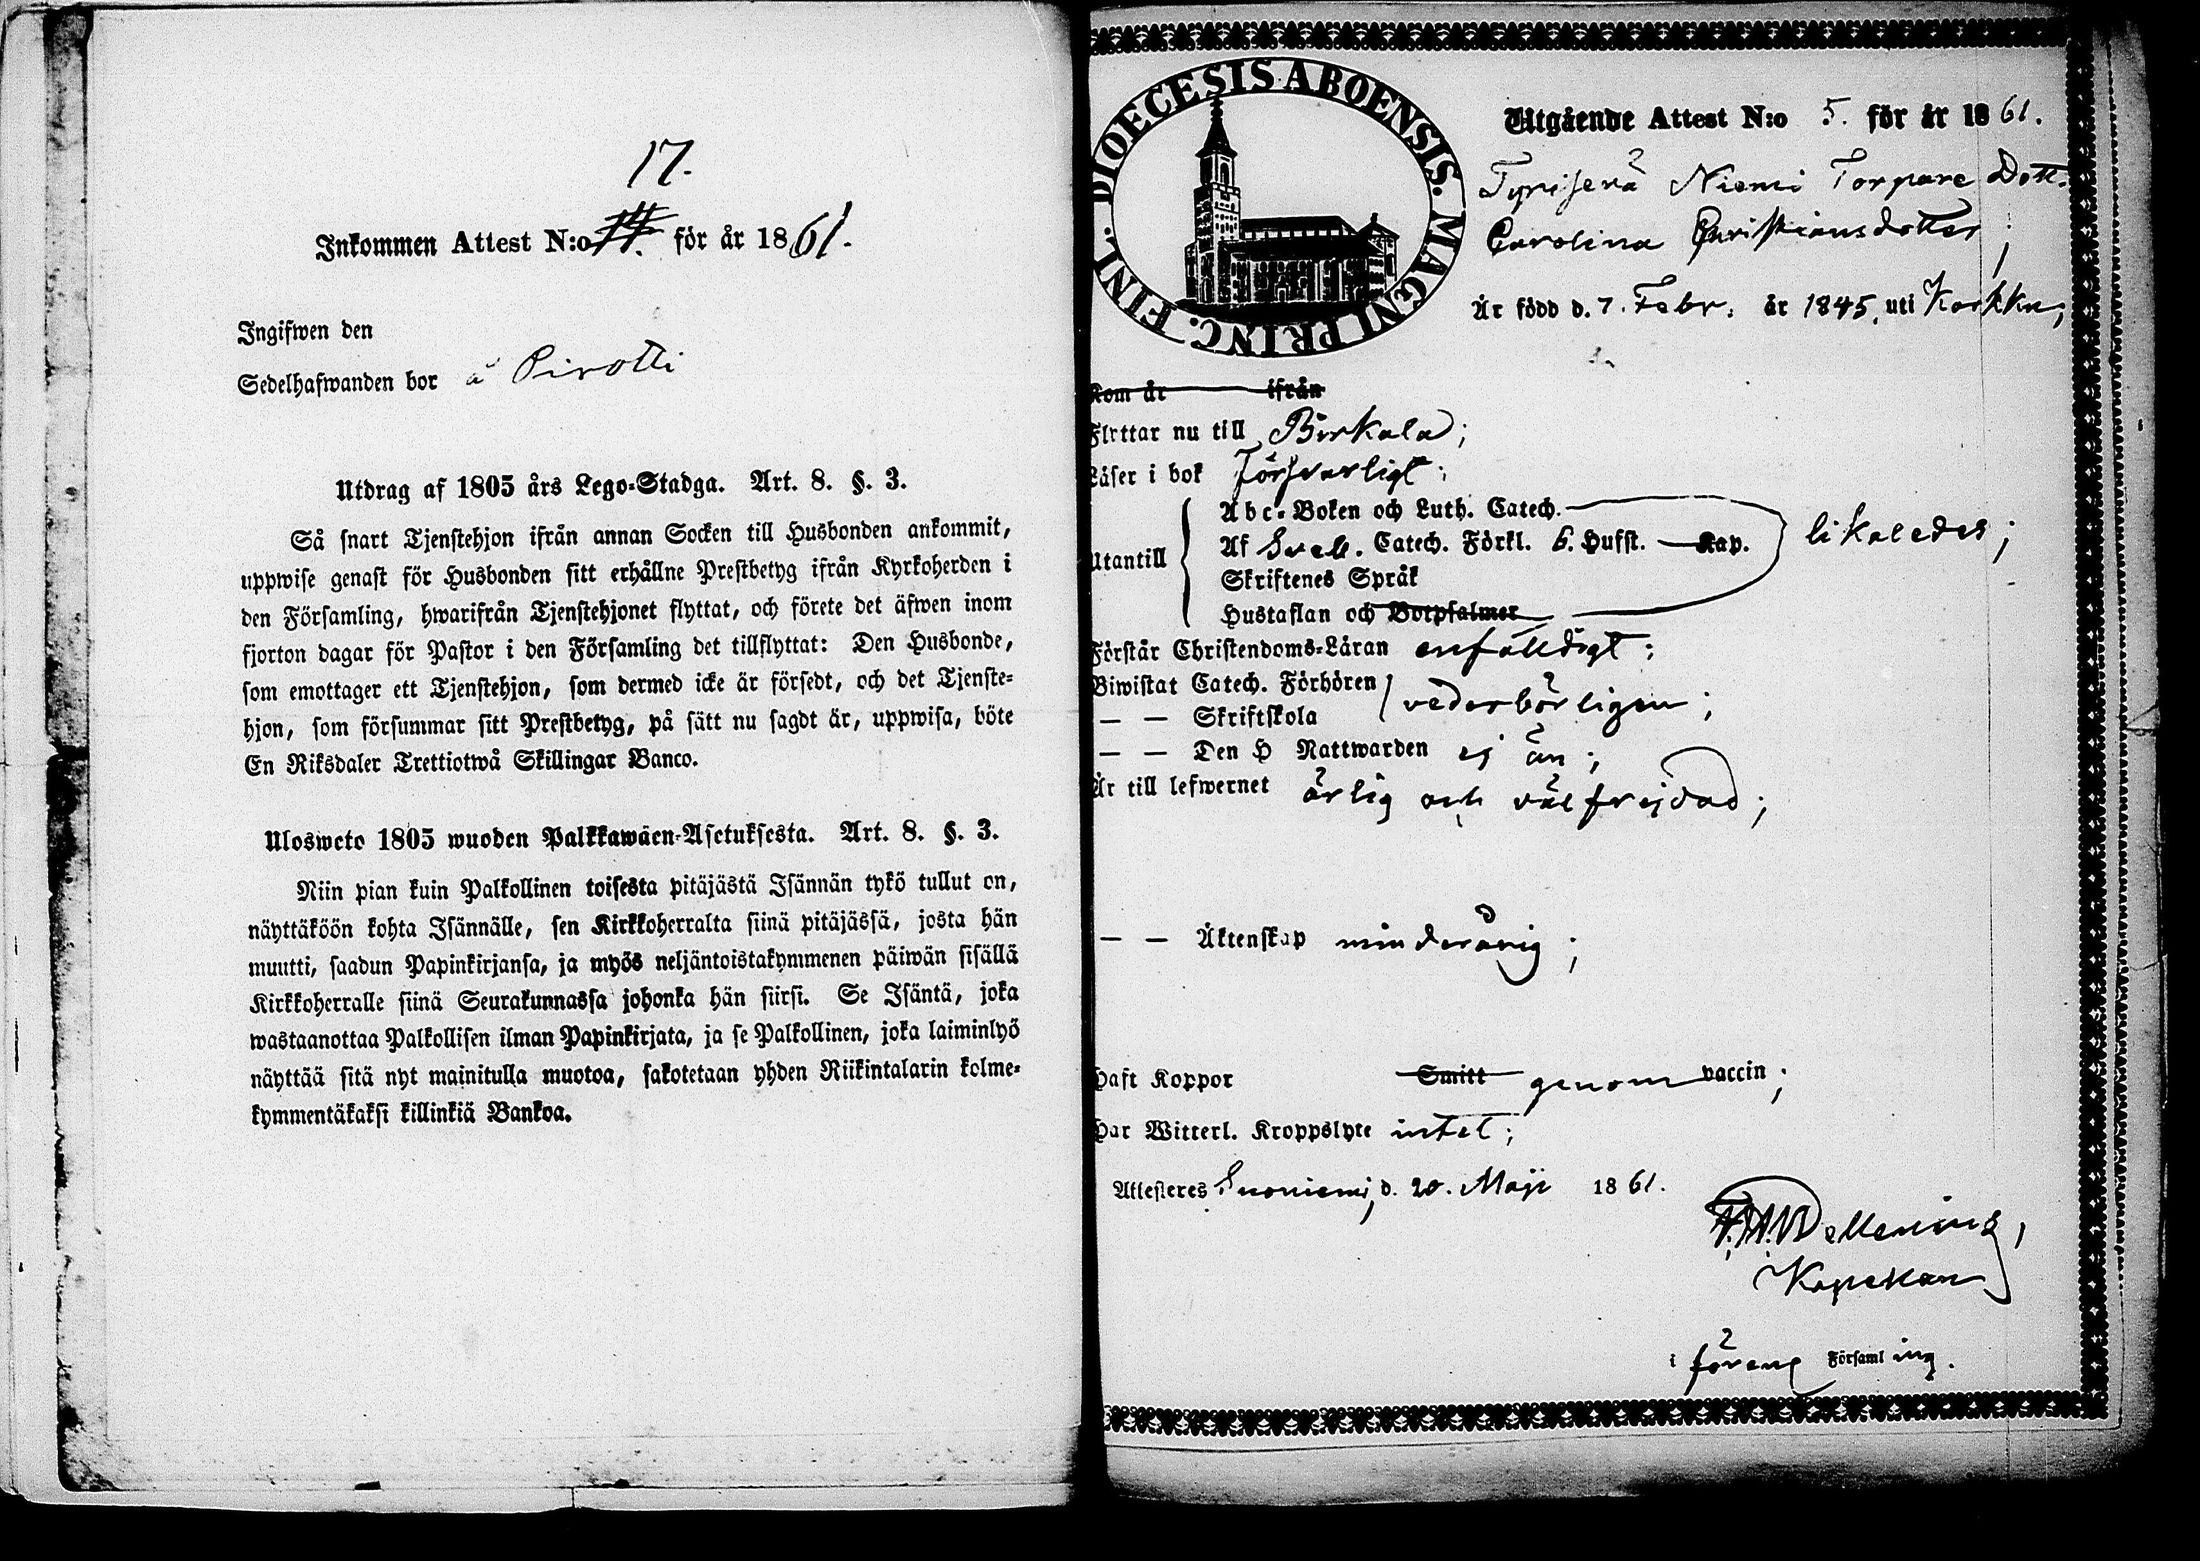 17.
Inkommen Attest N:o 14. för år 1861.
Ingifwen den
Sedelhafwanden bor å Pirotti
Utdrag af 1805 års Lego-Stadga. Art. 8. §. 3.
Så snart Tjenstehjon ifrån annan Socken till Husbonden ankommit,
uppwise genast för Husbonden sitt erhållne Prestbetyg ifrån Kyrkoherden i
den Församling, hwarifrån Tjenstehjonet flyttat, och förete det äfwen inom
fjorton dagar för Pastor i den Församling det tillflyttat: Den Husbonde,
som emottager ett Tjenstehjon, som dermed icke är försedt, och det Tjenste-
hjon, som försummar sitt Prestbetyg, på sätt nu sagdt är, uppwisa, böte
En Riksdaler Trettiotwå Skillingar Banco.
Ulosweto 1805 wuoden Palkkawäen-Asetuksesta. Art. 8. §. 3.
Niin pian kuin Palkollinen toisesta pitäjästä Isännän tykö tullut on,
näyttäköön kohta Isännälle, sen Kirkkoherralta siinä pitäjässä, josta hän
muutti, saadun Papinkirjansa, ja myös neljäntoistakymmenen päiwän sisällä
Kirkkoherralle siinä Seurakunnassa johonka hän siirsi. Se Isäntä, joka
wastaanottaa Palkollisen ilman Papinkirjata, ja se Palkollinen, joka laiminlyö
näyttää sitä nyt mainitulla muotoa, sakotetaan yhden Riikintalarin kolme-
kymmentäkaksi killinkiä Bankoa.
FINL. DIOECESIS ABOENSIS. MAGNI PRINC.
Utgående Attest N:o 5. för år 1861.
Tyrisevä Niemi Torpare Dott.
Carolina Christiansdotter;
Är född d. 7. Febr. år 1845, uti Karkku;
Kom år ifrån
Flyttar nu till Birkala;
Läser i bok försvarligt;
Abc-Boken och Luth. Catech.
Utantill Af Sveb. Catech. Förkl. 6. Hufst. Kap. likaledes;
Skriftenes Språk
Hustaflan och Botpsalmer
Förstår Christendoms-Läran enfäldigt;
Biwistat Catech. Förhören vederbörligen;
— — Skriftskola
— — Den H Nattwarden ej än;
Är till lefwernet ärlig och välfrejdad;
— — Äktenskap minderårig;
Haft Koppor Smitt genom vaccin;
Har Witterl. Kroppslyte intet;
Attesteres Suoniemi, d. 20. Maji 1861.
Kapellan
i förenh Församling.